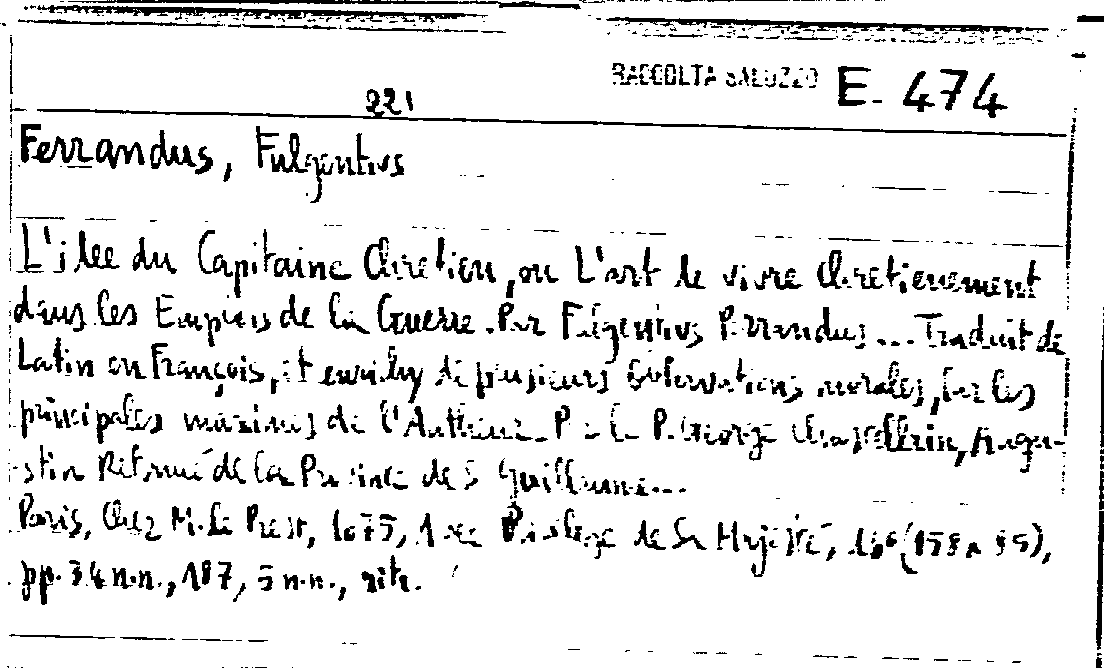 RACCOLTA SALUZZO E. 474
221
Ferrandus, Fulgentius
L'idee du Capitaine Chretien, ou L'art de vivre chretienement
dans les Emplois de la Guerre. Par Fulgentius Ferrandus... Traduit de
Latin en François, et enrichy de plusieurs observations morales, sur les
principales maximes de l'Autheur. Par le P. George Chapellerin, Augu-
stin Reformé de la Province de S. Guillaume...
Paris, Chez M. Le Prest, 1675, Avec Privilege de Sa Majesté, 16° (158 x 95),
pp. 34 n.n., 187, 5 n.n., ritr.